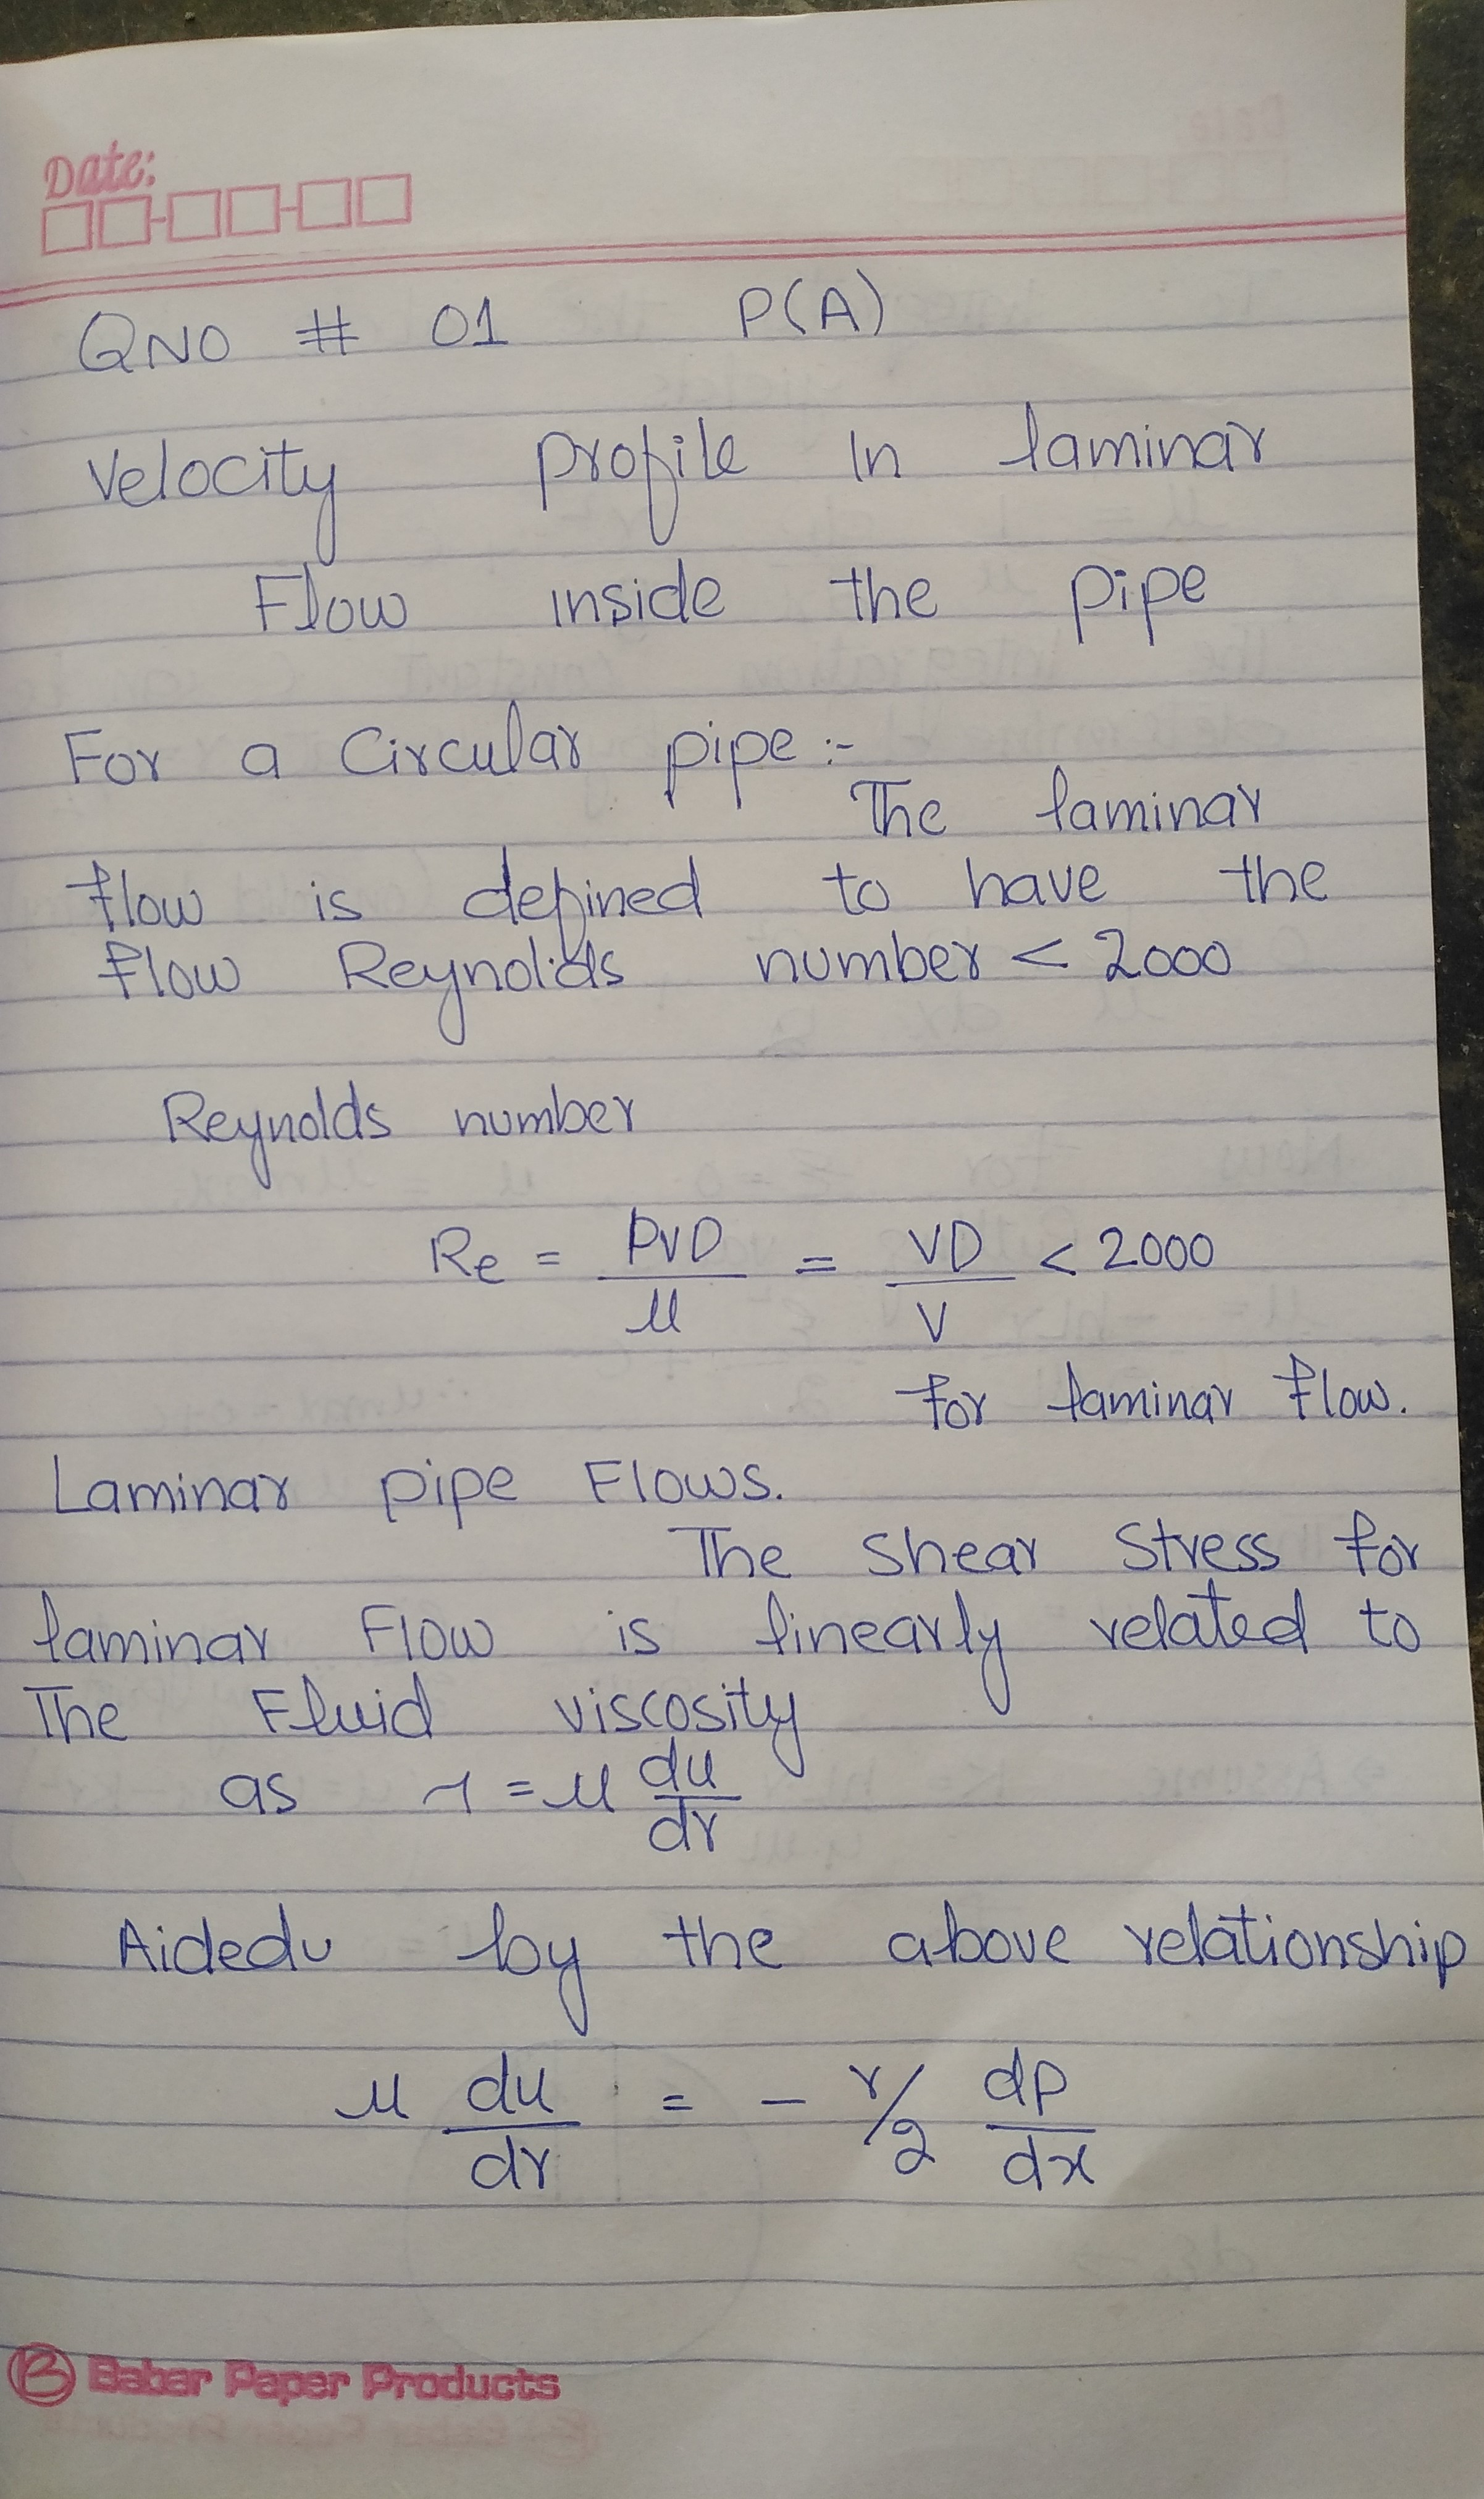 Date:
QNO # 01 P(A)
Velocity profile In laminar
Flow inside the pipe
For a Circular pipe :-
The laminar
flow is defined to have the
flow Reynolds number < 2000
Reynolds number
Re = ρVD/μ = VD/ν < 2000
for laminar flow.
Laminar pipe Flows.
The Shear Stress for
laminar Flow is linearly related to
The Fluid viscosity
as τ = μ du/dr
Aidedu by the above relationship
μ du/dr = - r/2 dp/dx
B Babar Paper Products